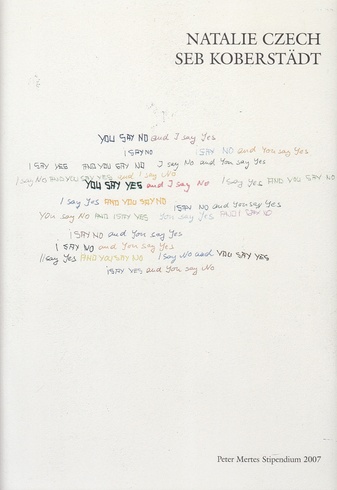 NATALIE CZECH
SEB KOBERSTÄDT
YOU SAY NO and I say Yes
I SAY NO I SAY NO and You say Yes
I SAY YES AND YOU SAY NO I say No and You say Yes
I say NO AND YOU SAY YES and I say NO
YOU SAY YES and I say No I say Yes AND YOU SAY NO
I say Yes AND YOU SAY NO I SAY NO and You say Yes
You say NO AND I SAY YES You say Yes AND I SAY NO
I SAY NO and You say Yes
I SAY NO and You say Yes
I say Yes AND YOU SAY NO I say No and YOU SAY YES
I SAY YES and You say No
Peter Mertes Stipendium 2007